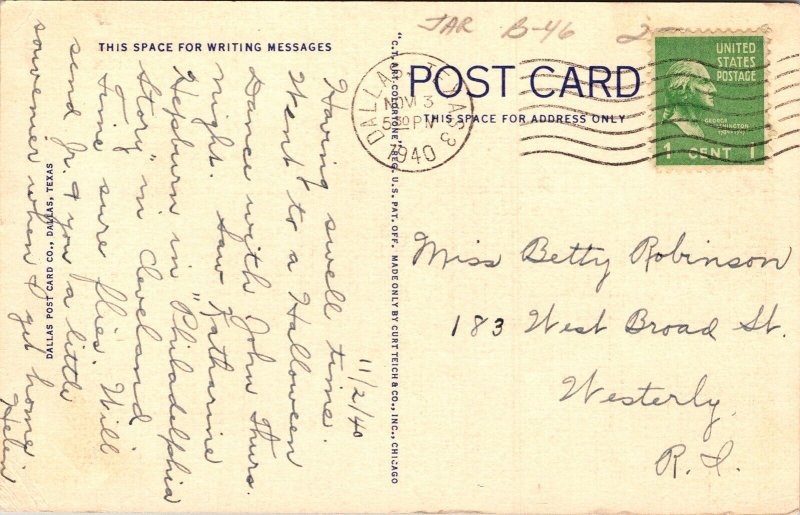 THIS SPACE FOR WRITING MESSAGES
11/2/40
Having swell time.
Went to a Halloween
Dance with John Thurs.
night. Saw Katharine
Hepburn in "Philadelphia
Story" in Cleveland
Time sure flies. Will
send Jr. & you a little
souvenier when I get home
Helen
DALLAS POST CARD CO., DALLAS, TEXAS
"C.T. ART-COLORTONE" REG. U.S. PAT. OFF. MADE ONLY BY CURT TEICH & CO., INC., CHICAGO
JAR B-46 2
POST CARD
THIS SPACE FOR ADDRESS ONLY
DALLAS, TEXAS 3
NOV 3
5 30 PM
1940
UNITED
STATES
POSTAGE
GEORGE
WASHINGTON
1 CENT 1
Miss Betty Robinson
183 West Broad St.
Westerly,
R.I.